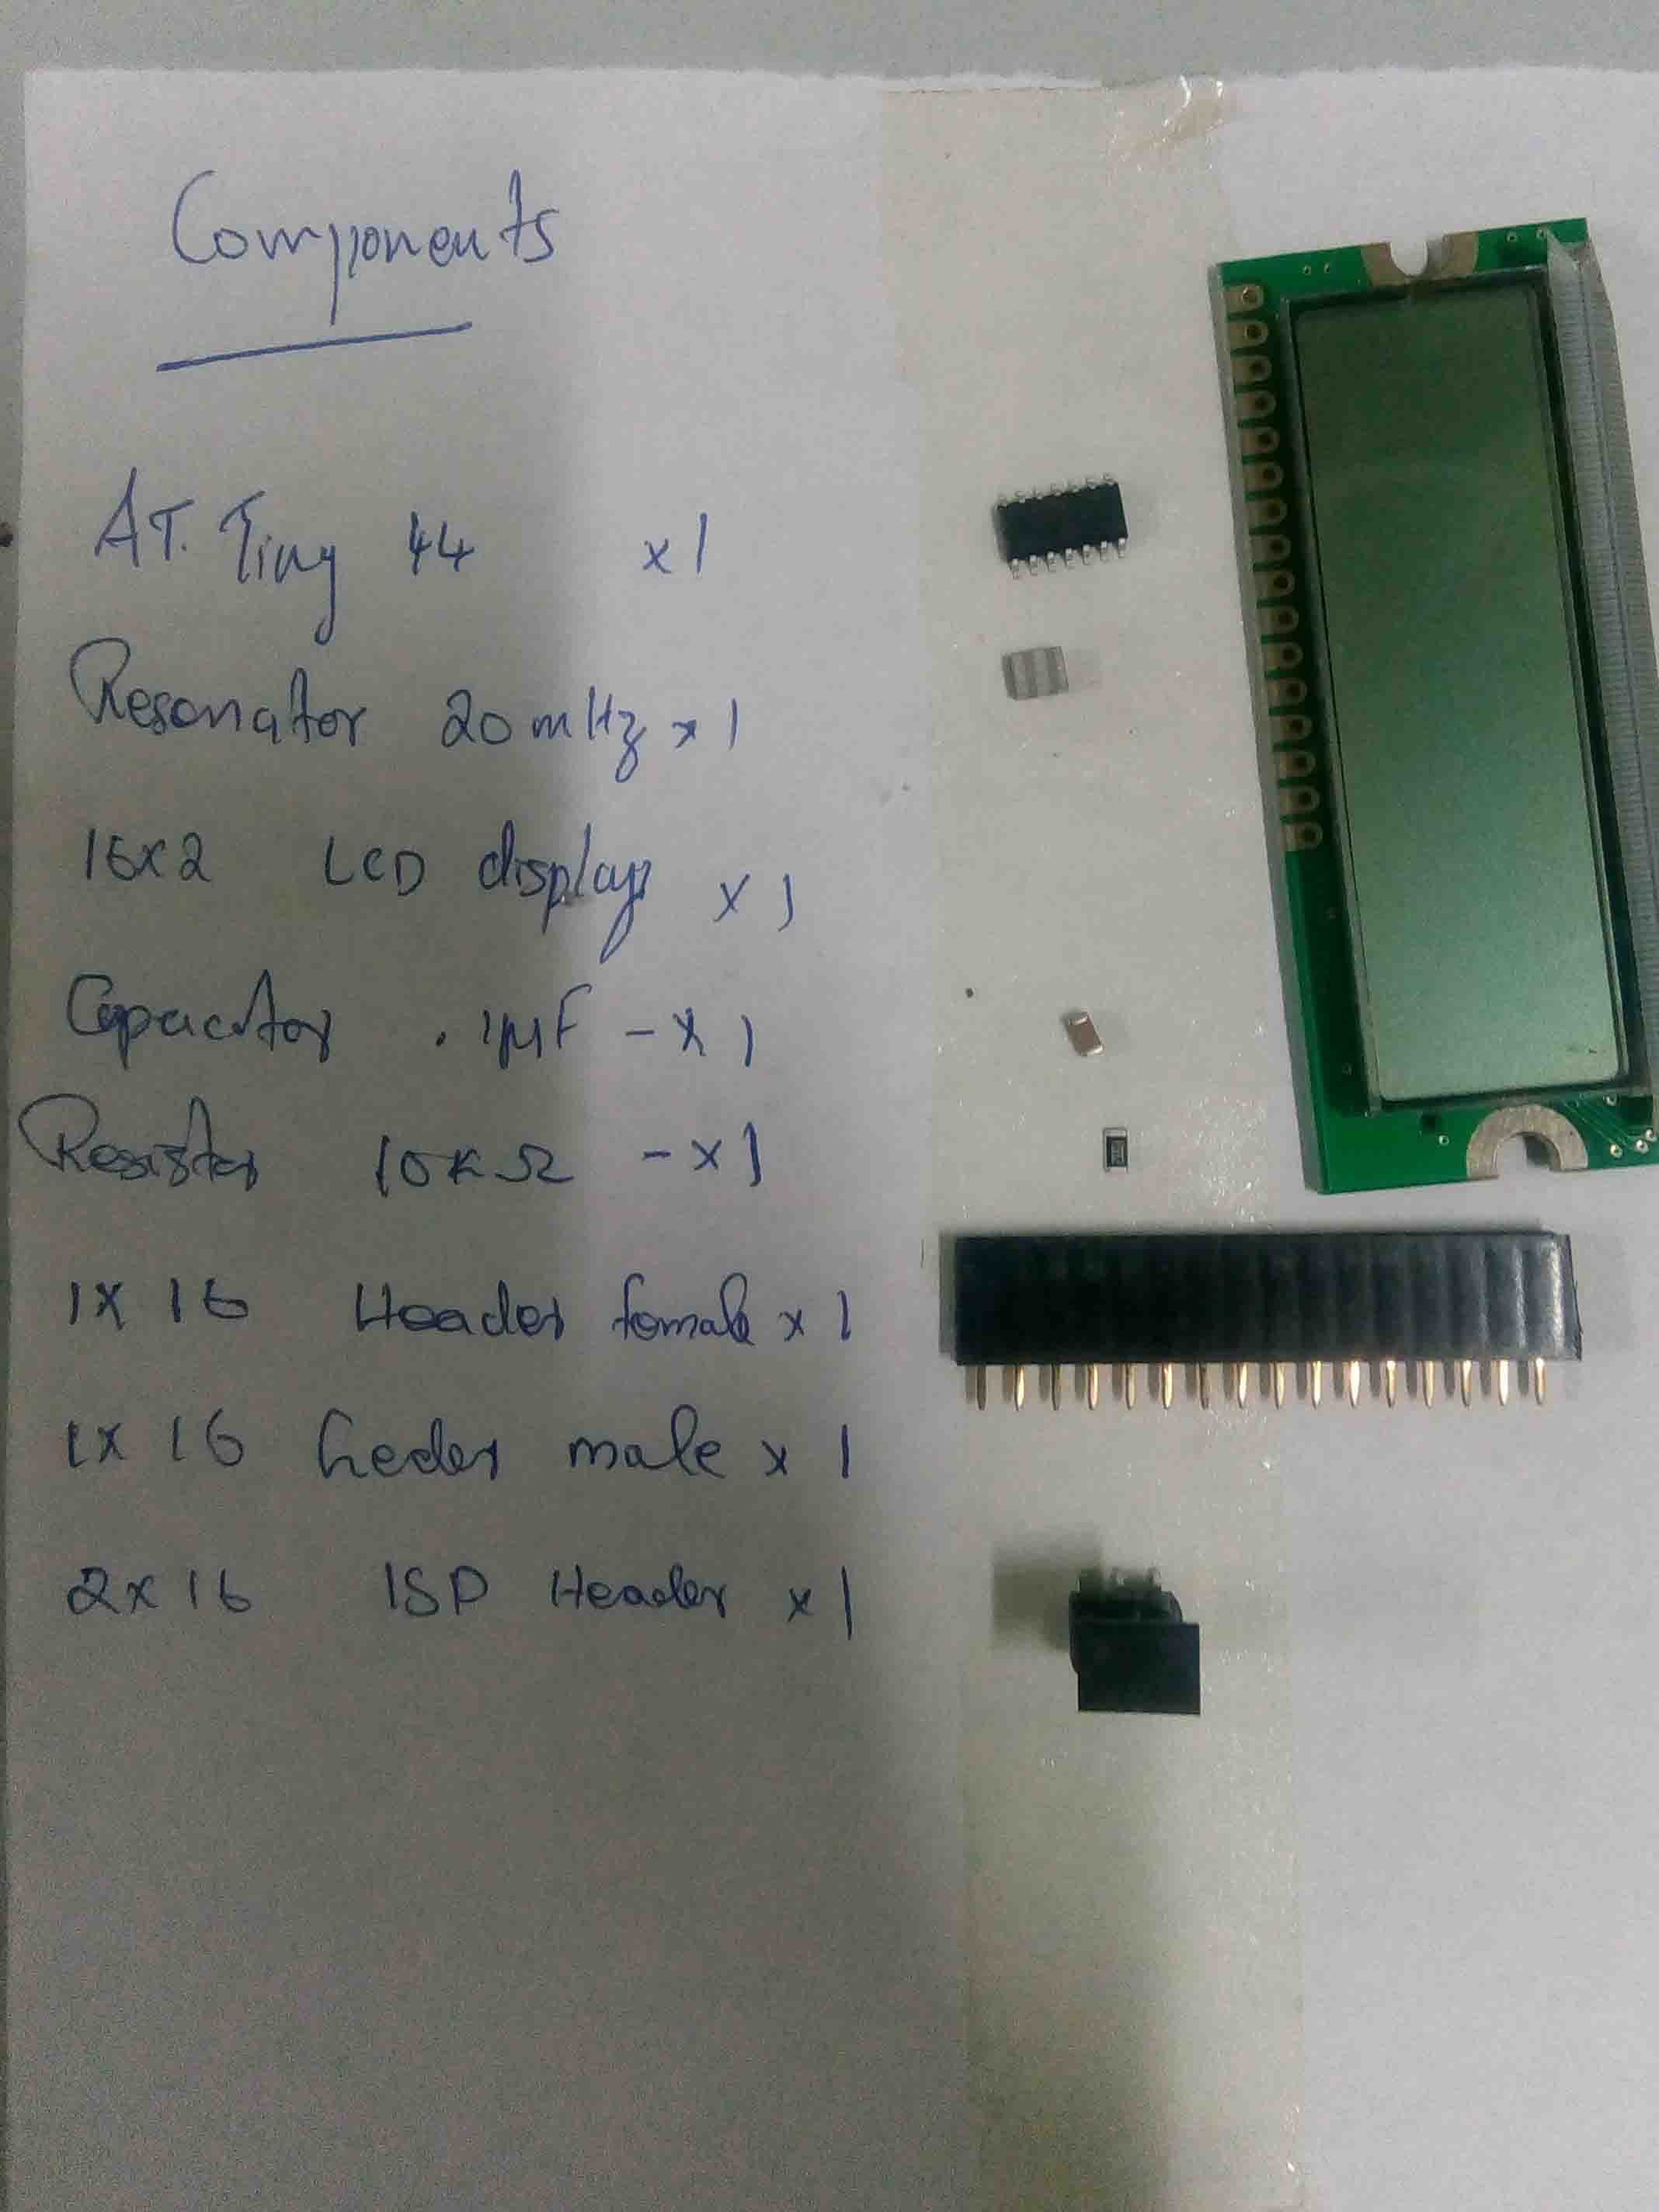 Components
AT. Tiny 44 x1
Resonator 20mHz x1
16x2 LCD display x1
Capacitor .1µF - x1
Resistor 10KΩ - x1
1x16 Header female x1
1x16 heder male x1
2x16 ISP Header x1